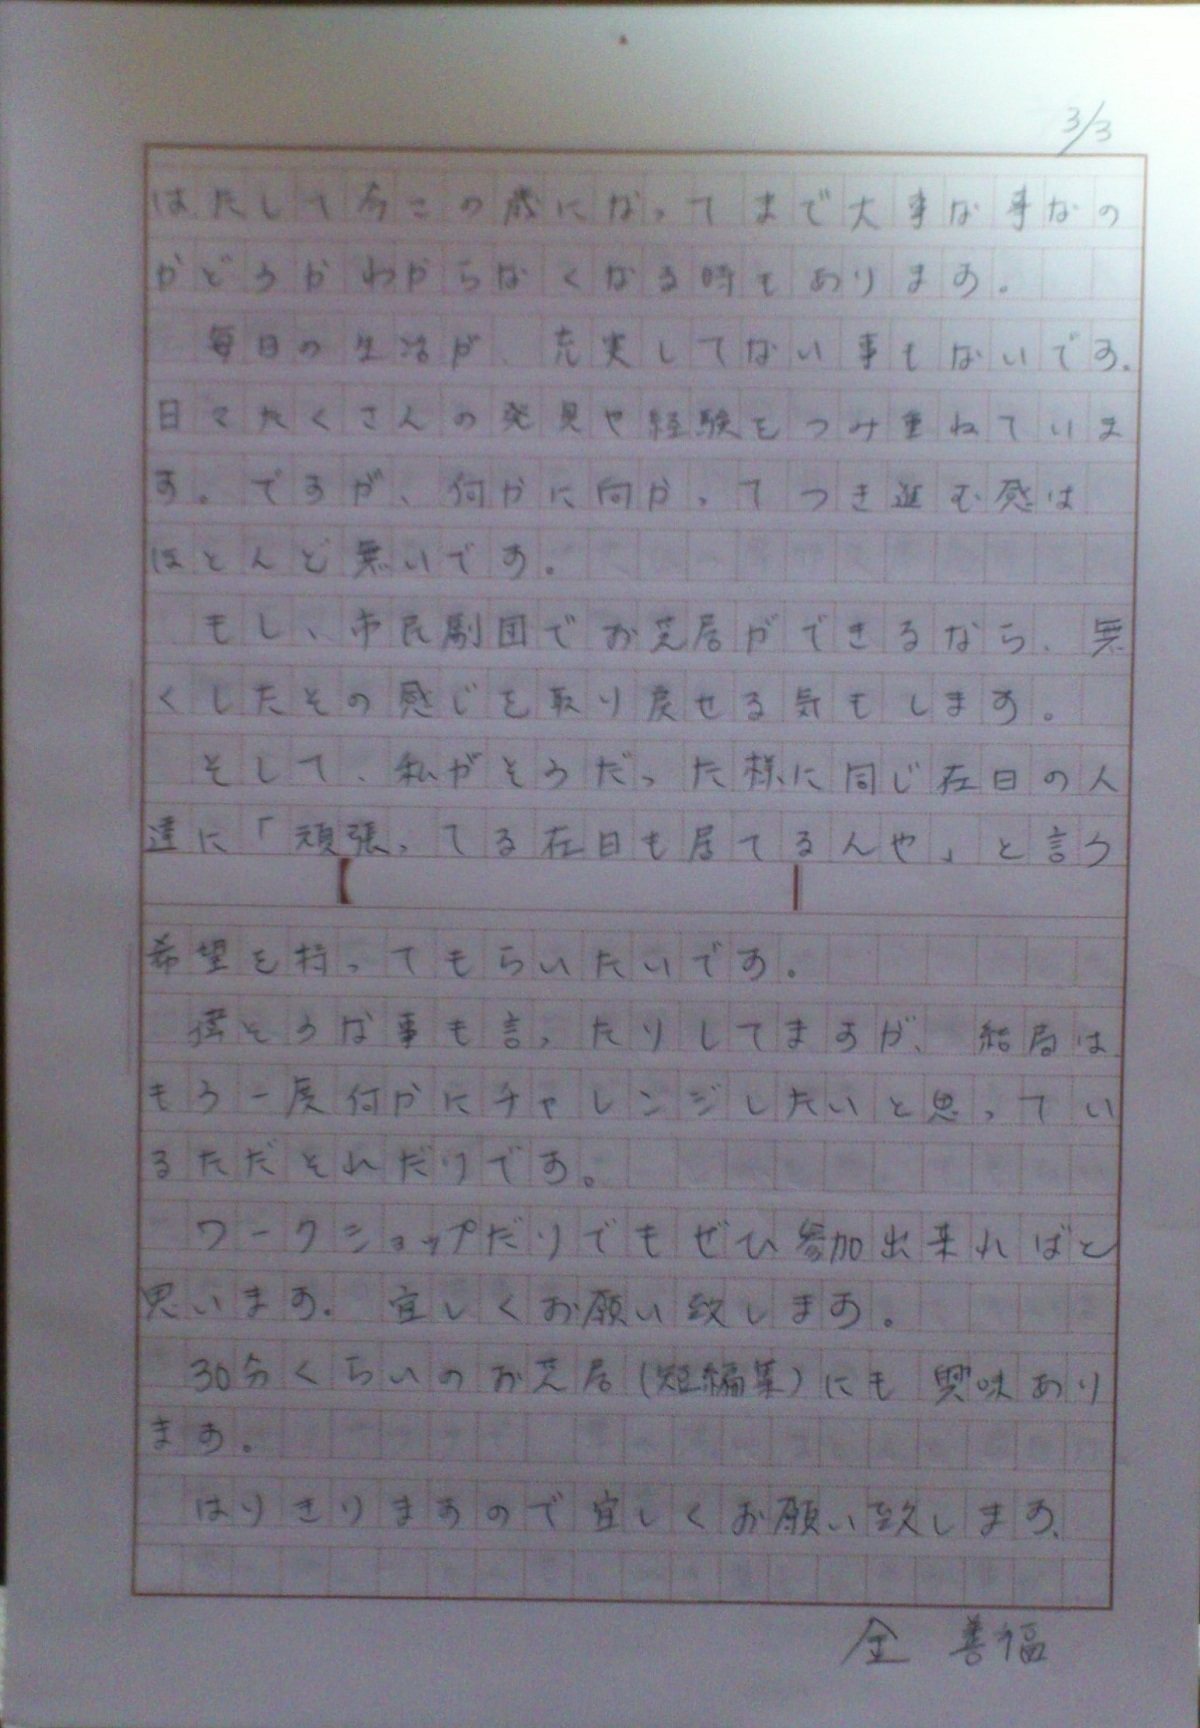 3/3
はたして今この歳になってまで大事な事なの
かどうかわからなくなる時もあります。
毎日の生活が、充実してない事もないです。
日々たくさんの発見や経験をつみ重ねていま
す。ですが、何かに向かってつき進む感は
ほとんど無いです。
もし、市民劇団でお芝居ができるなら、無
くしたその感じを取り戻せる気もします。
そして、私がそうだった様に同じ在日の人
達に「頑張ってる在日も居てるんや」と言う
希望を持ってもらいたいです。
偉そうな事も言ったりしてますが、結局は
もう一度何かにチャレンジしたいと思ってい
るただそれだけです。
ワークショップだけでもぜひ参加出来ればと
思います。宜しくお願い致します。
30分くらいのお芝居(短編集)にも興味あり
ます。
はりきりますので宜しくお願い致します、
金 善福